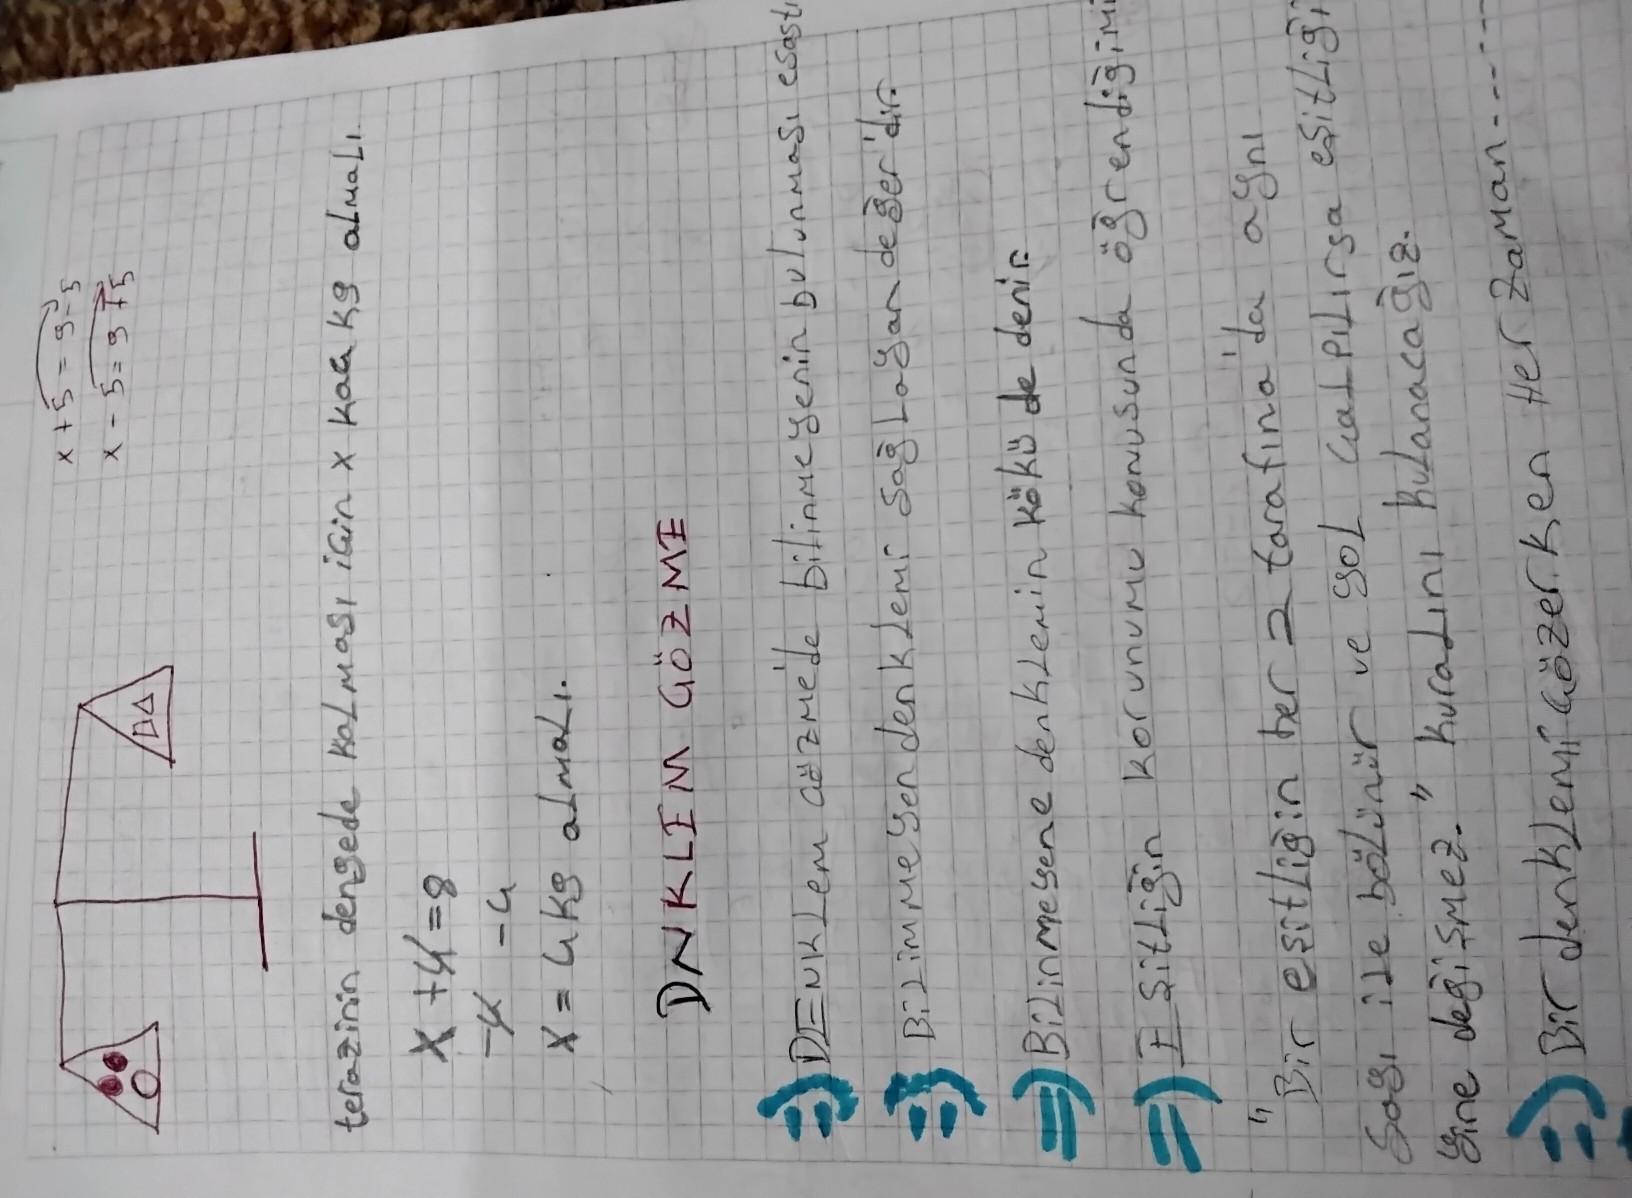 x + 5 = 9 - 5
x - 5 = 9 + 5
terazinin dengede kalması için x kaç kg almalı.
x + 4 = 8
-4 -4
x = 4 kg almalı.
DNKLEM ÇÖZME
DENKlem çözme'de bilinmeyenin bulunması esastı
Bilinmeyen denklemi sağlayan değer'dir.
Bilinmeyene denklemin kökü de denir.
Eşitliğin korunumu konusunda öğrendiğimi
"Bir eşitliğin her 2 tarafına'da aynı
Sayı ile bölünür ve yol çalpılırsa eşitliği
yine değişmez." kuralını kulanacağız.
Bir denklemi çözerken Her zaman-----